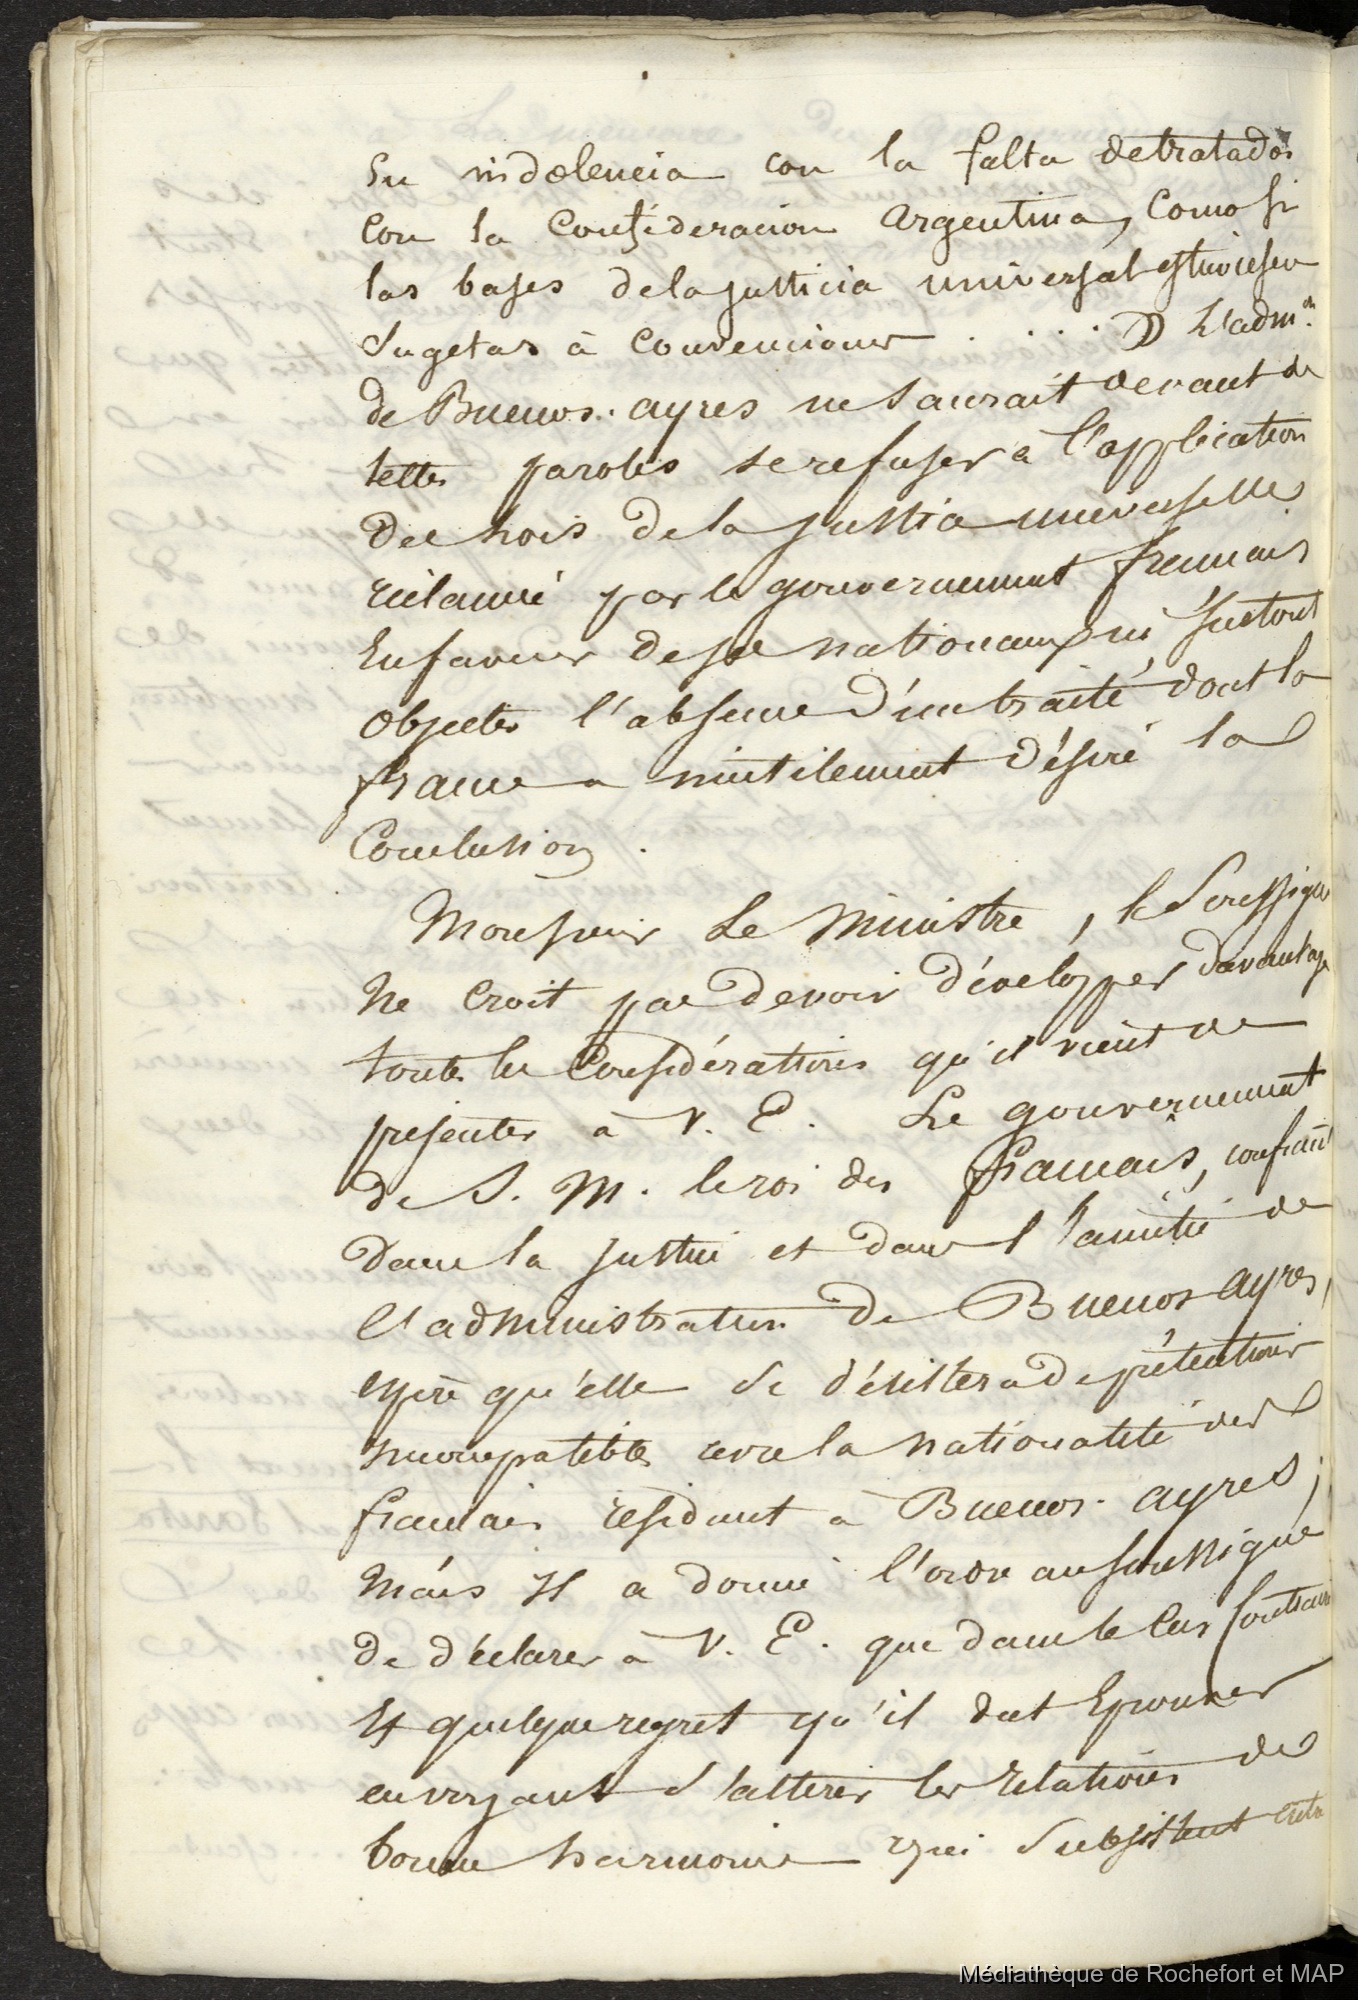 su indolencia con la falta de tratados
con la Confederacion argentina, como si
las bases de la justicia universal estuviesen
sugetas à convenciones . . . . » L'adm.on
de Buenos-ayres ne saurait devant de
telles paroles se refuser à l'application
des lois de la justice universelle
réclamé par le gouvernement français
en faveur de ses nationaux ni surtout
objecter l'absence d'un traité dont la
france a inutilement désiré la
Conclusion.
Monsieur Le Ministre, le Soussigné
ne croit pas devoir développer davantage
toutes les Considérations qu'il vient de
présenter à V. E. Le gouvernement
de S. M. le roi des français, confiant
dans la justice et dans l'amitié de
l'administration de Buenos-ayres,
espère qu'elle se désistera de prétentions
incompatibles avec la nationalité des
français résidant à Buenos-ayres;
Mais Il a donné l'ordre au soussigné
de déclarer à V. E. que dans le Cas contraire
Et quelque regret qu'il dut Eprouver
en voyant s'altérer les relations de
bonne harmonie qui subsistent entre
Médiathèque de Rochefort et MAP